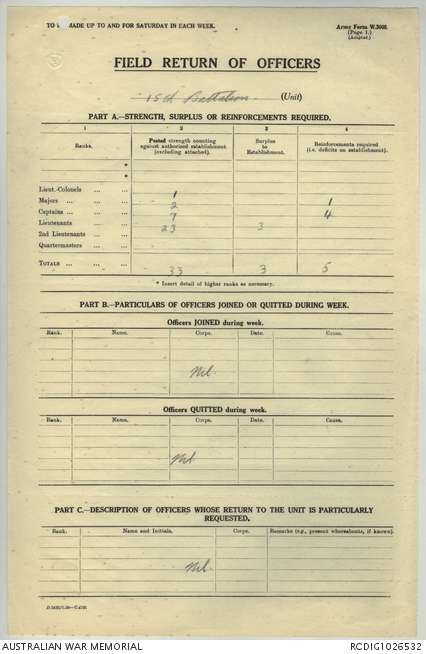 TO BE MADE UP TO AND FOR SATURDAY IN EACH WEEK.
Army Form W.3008.
(Page 1.)
FIELD RETURN OF OFFICERS
15th Battalion. (Unit)
PART A.—STRENGTH, SURPLUS OR REINFORCEMENTS REQUIRED.
1 2 3 4
Ranks. Posted strength counting against authorized establishment (excluding attached). Surplus to Establishment. Reinforcements required (i.e. deficits on establishment).
*
*
Lieut.-Colonels ... ... 1
Majors ... ... ... 2 1
Captains ... ... ... 7 4
Lieutenants ... ... 23 3
2nd Lieutenants ... ...
Quartermasters ... ...
TOTALS ... ... ... 33 3 5
* Insert detail of higher ranks as necessary.
PART B.—PARTICULARS OF OFFICERS JOINED OR QUITTED DURING WEEK.
Officers JOINED during week.
Rank. Name. Corps. Date. Cause.
Nil.
Officers QUITTED during week.
Rank. Name. Corps. Date. Cause.
Nil
PART C.—DESCRIPTION OF OFFICERS WHOSE RETURN TO THE UNIT IS PARTICULARLY
REQUESTED.
Rank. Name and Initials. Corps. Remarks (e.g., present whereabouts, if known).
Nil.
AUSTRALIAN WAR MEMORIAL
RCDIG1026532